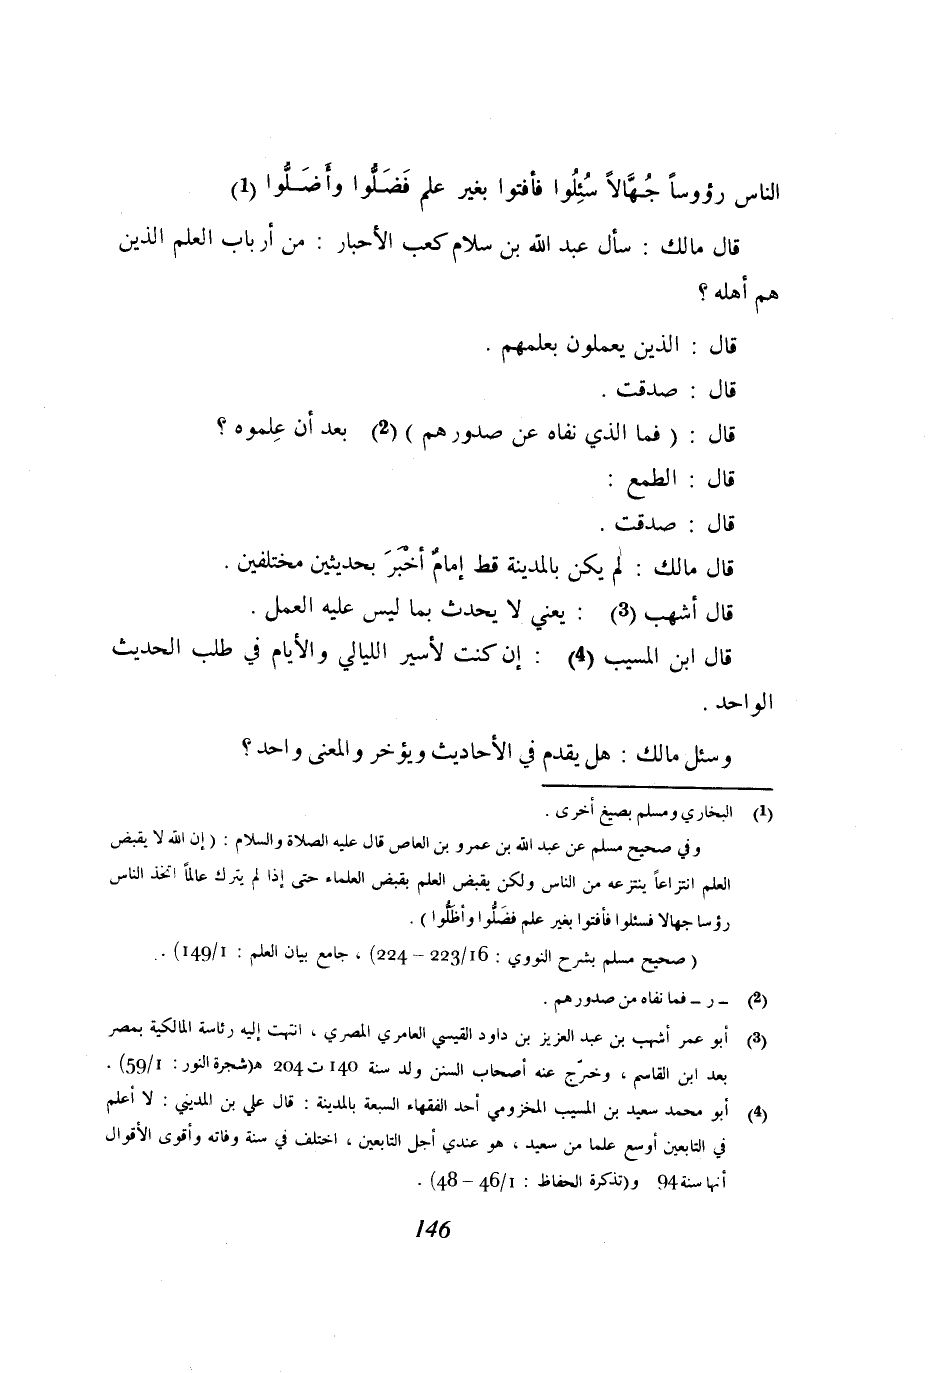 الناس رؤوساً جُهَّالاً سُئِلُوا فأفتوا بغير علم فَضَلُّوا وأَضَلُّوا (1)
قال مالك : سأل عبد الله بن سلام كعب الأحبار : من أرباب العلم الذين
هم أهله ؟
قال : الذين يعملون بعلمهم .
قال : صدقت .
قال : ( فما الذي نفاه عن صدورهم ) (2) بعد أن عِلموه ؟
قال : الطمع :
قال : صدقت .
قال مالك : لم يكن بالمدينة قط إمامٌ أَخْبَرَ بحديثين مختلفين .
قال أشهب (3) : يعني لا يحدث بما ليس عليه العمل .
قال ابن المسيب (4) : إن كنت لأسير الليالي والأيام في طلب الحديث
الواحد .
وسئل مالك : هل يقدم في الأحاديث ويؤخر والمعنى واحد ؟
(1) البخاري ومسلم بصيغ أخرى .
وفي صحيح مسلم عن عبد الله بن عمرو بن العاص قال عليه الصلاة والسلام : ( إن الله لا يقبض
العلم انتزاعاً ينتزعه من الناس ولكن يقبض العلم بقبض العلماء حتى إذا لم يترك عالماً اتخذ الناس
رؤسا جهالا فسئلوا فأفتوا بغير علم فضَلُّوا وأظَلُّوا ) .
( صحيح مسلم بشرح النووي : 223/16 – 224) ، جامع بيان العلم : 149/1) .
(2) – ر – فما نفاه من صدورهم .
(3) أبو عمر أشهب بن عبد العزيز بن داود القيسي العامري المصري ، انتهت إليه رئاسة المالكية بمصر
بعد ابن القاسم ، وخرّج عنه أصحاب السنن ولد سنة 140 ت 204 هـ(شجرة النور : 59/1) .
(4) أبو محمد سعيد بن المسيب المخزومي أحد الفقهاء السبعة بالمدينة : قال علي بن المديني : لا أعلم
في التابعين أوسع علما من سعيد ، هو عندي أجل التابعين ، اختلف في سنة وفاته وأقوى الأقوال
أنها سنة 94 و(تذكرة الحفاظ : 46/1 – 48) .
146